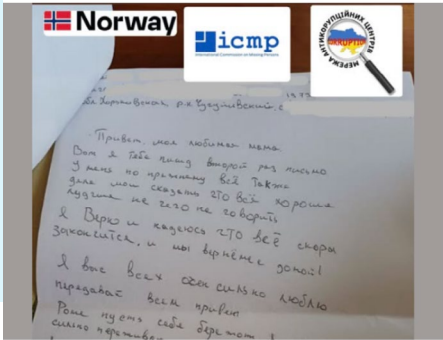 Norway
icmp
International Commission on Missing Persons
МЕРЕЖА АНТИКОРУПЦІЙНИХ ЦЕНТРІВ
Привет, моя любимая мама
Вот я тебе пишу второй раз письмо
у меня по прежнему всё также
дела могу сказать что всё хорошо
лудшие не чего не говорить
Я Верю и надеюсь что всё скоро
закончится, и мы вернёмся домой!
Я вас всех очен сильно люблю
передавай всем привет
Роме пусть себя бережот!
сильно